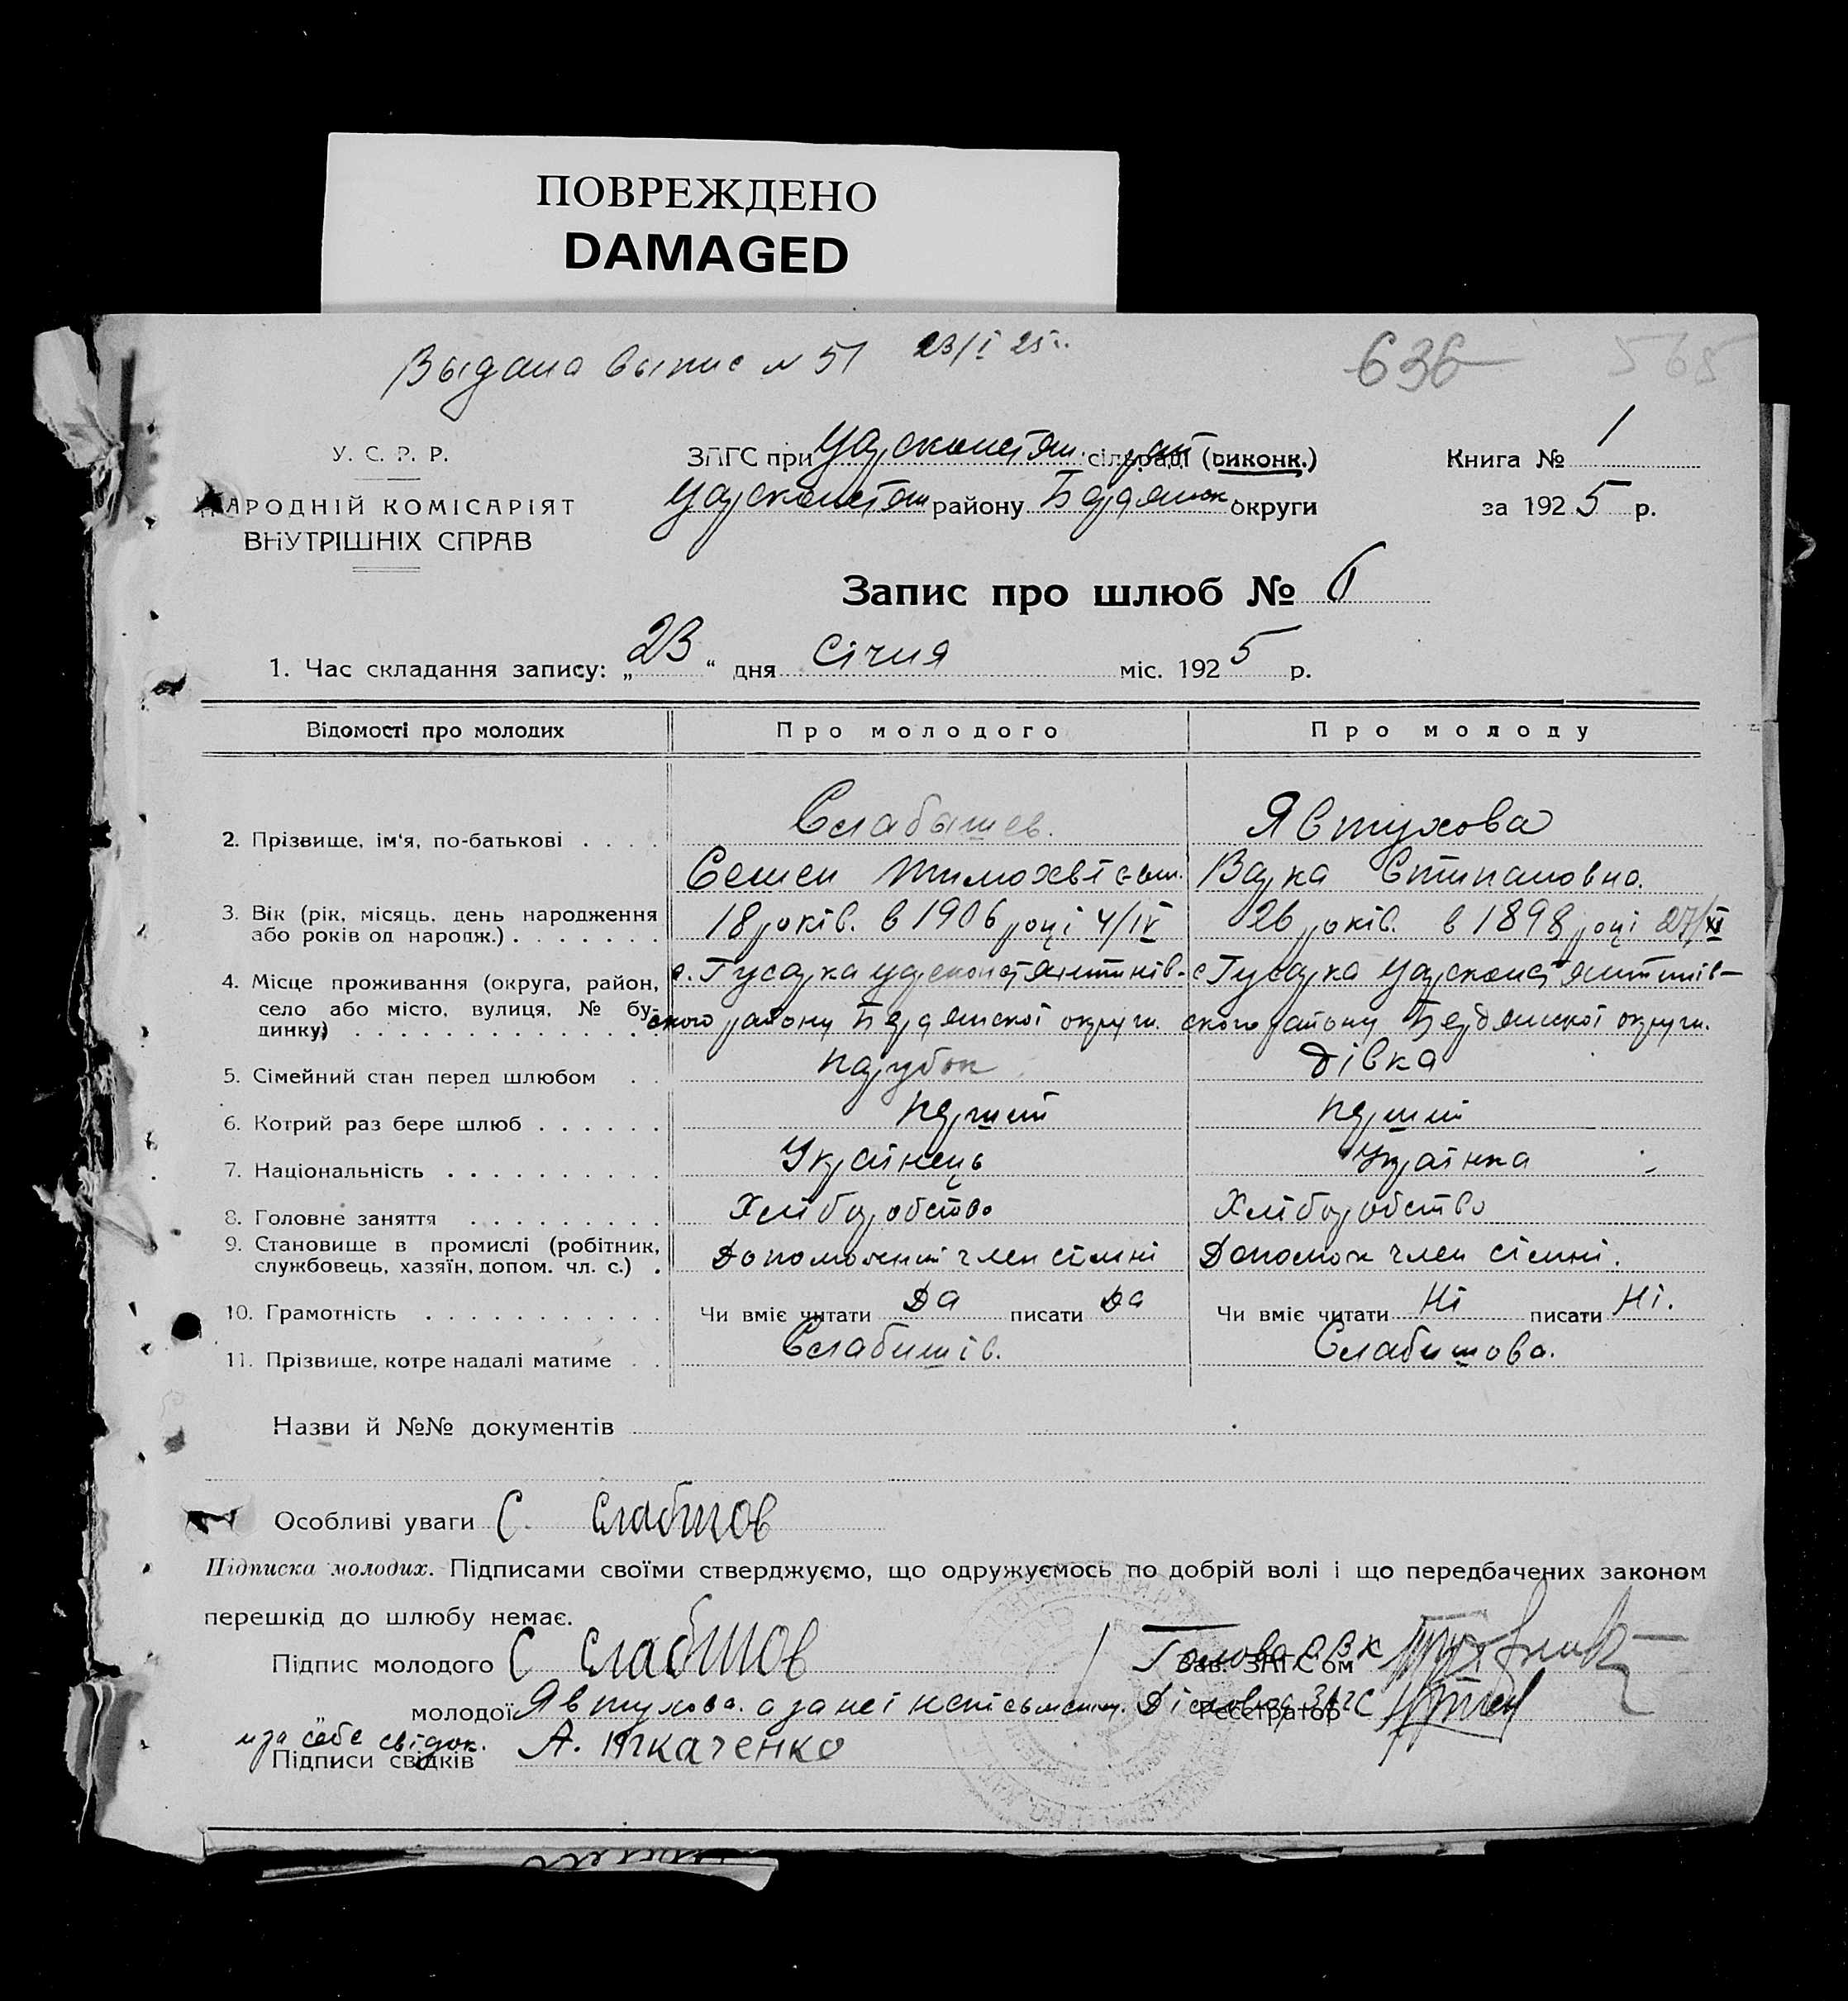 ПОВРЕЖДЕНО
DAMAGED
Выдана выпис № 51 23/I 25г.
636 565
У. С. Р. Р.
НАРОДНІЙ КОМІСАРІЯТ
ВНУТРІШНІХ СПРАВ
ЗАГС при Царсконстян. сільраді (виконк.)
Царсконстян району Бердянок округи
Книга № 1
за 1925 р.
Запис про шлюб № 6
1. Час складання запису: „23“ дня Січня міс. 1925 р.
Відомості про молодих Про молодого Про молоду
2. Прізвище, ім'я, по-батькові . . . . Слабышев. Явтухова
Семен Тимохвієвич. Варка Стипановна.
3. Вік (рік, місяць, день народження або років од народж.) . . . . . . . 18 років. в 1906 році 4/IV 26 років. в 1898 році 27/XI
4. Місце проживання (округа, район, село або місто, вулиця, № будинку) с. Гусарка Царсконстянтинів- с Гусарка Царсконстянтинів-
ского району Бердянскої округи. ского району Бердянскої округи.
5. Сімейний стан перед шлюбом . . парубок дівка
6. Котрий раз бере шлюб . . . . . . перший перший
7. Національність . . . . . . . . . . Українець Українка
8. Головне заняття . . . . . . . . . Хліборобство Хліборобство
9. Становище в промислі (робітник, службовець, хазяїн, допом. чл. с.) . Допоможний член сімні Допомож член сімні.
10. Грамотність . . . . . . . . . . . Чи вміє читати Да писати Да Чи вміє читати Ні писати Ні.
11. Прізвище, котре надалі матиме . . Слабишів. Слабишова.
Назви й №№ документів
Особливі уваги С. Слабишов
Підписка молодих. Підписами своїми стверджуємо, що одружуємось по добрій волі і що передбачених законом
перешкід до шлюбу немає.
Підпис молодого С Слабишов Голова РВК
Зав. ЗАГС'ом
молодої Явтухова. а за неї неписьменну. Діловод ЗАГС
Реєстратор
и за себе свідок.
Підписи свідків А. Ткаченко